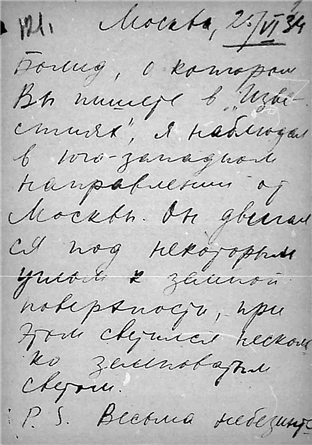 121. Москва, 25/VI 34
Болид, о котором
Вы пишете в „Изве-
стиях", я наблюдал
в юго-западном
направлении от
Москвы. Он двигал
ся под некоторым
углом к земной
поверхности, при
этом светился несколь
ко зеленоватым
светом.
P. S. Весьма небезинте